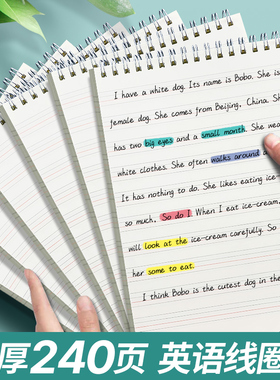 I have a white dog. Its name is Bobo. She
female dog. She comes from Beijing, China. Sh
has two big eyes and a small month. She wea
white clothes. She often walks around
It has nothing to do. She likes eating ice-
so much. So do I When I eat ice-cream,
will look at the ice-cream carefully. So
her some to eat.
I think Bobo is the cutest dog in the
厚240页 英语线圈